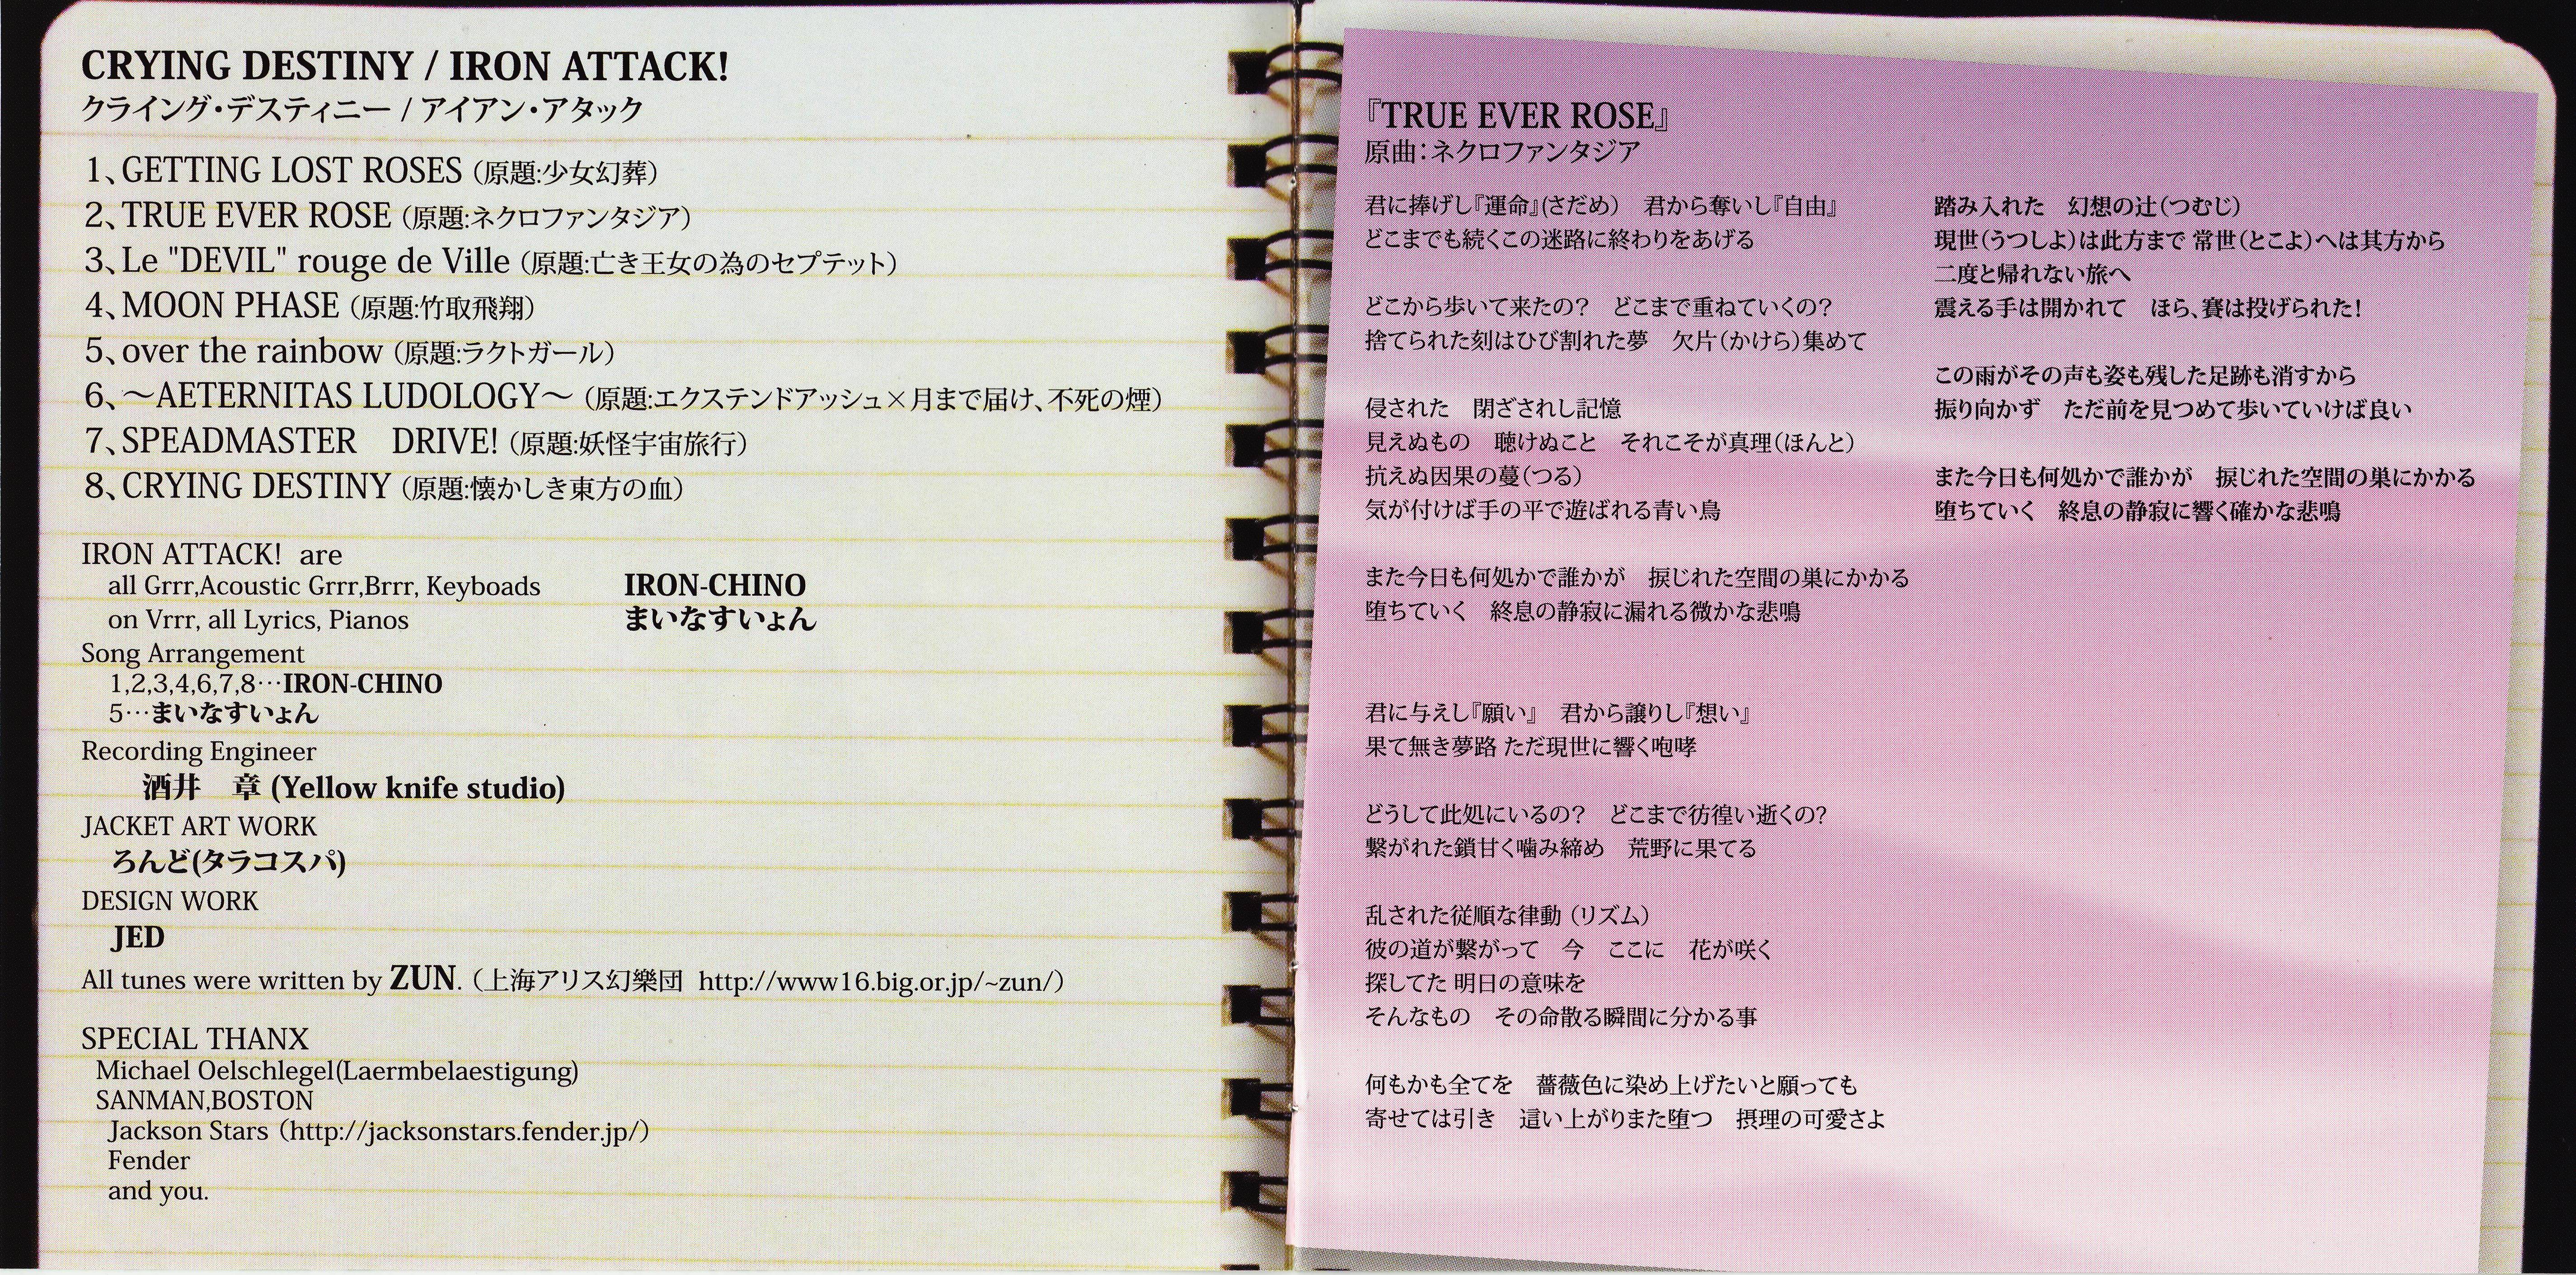 CRYING DESTINY / IRON ATTACK!
クライング・デスティニー / アイアン・アタック
1、GETTING LOST ROSES（原題:少女幻葬）
2、TRUE EVER ROSE（原題:ネクロファンタジア）
3、Le "DEVIL" rouge de Ville（原題:亡き王女の為のセプテット）
4、MOON PHASE（原題:竹取飛翔）
5、over the rainbow（原題:ラクトガール）
6、～AETERNITAS LUDOLOGY～（原題:エクステンドアッシュ×月まで届け、不死の煙）
7、SPEADMASTER　DRIVE!（原題:妖怪宇宙旅行）
8、CRYING DESTINY（原題:懐かしき東方の血）
IRON ATTACK! are
all Grrr,Acoustic Grrr,Brrr, Keyboads　IRON-CHINO
on Vrrr, all Lyrics, Pianos　まいなすいょん
Song Arrangement
1,2,3,4,6,7,8…IRON-CHINO
5…まいなすいょん
Recording Engineer
酒井　章 (Yellow knife studio)
JACKET ART WORK
ろんど(タラコスパ)
DESIGN WORK
JED
All tunes were written by ZUN.（上海アリス幻樂団 http://www16.big.or.jp/~zun/）
SPECIAL THANX
Michael Oelschlegel(Laermbelaestigung)
SANMAN,BOSTON
Jackson Stars（http://jacksonstars.fender.jp/）
Fender
and you.
『TRUE EVER ROSE』
原曲：ネクロファンタジア
君に捧げし『運命』(さだめ)　君から奪いし『自由』
どこまでも続くこの迷路に終わりをあげる
どこから歩いて来たの？　どこまで重ねていくの？
捨てられた刻はひび割れた夢　欠片（かけら）集めて
侵された　閉ざされし記憶
見えぬもの　聴けぬこと　それこそが真理（ほんと）
抗えぬ因果の蔓（つる）
気が付けば手の平で遊ばれる青い鳥
また今日も何処かで誰かが　捩じれた空間の巣にかかる
堕ちていく　終息の静寂に漏れる微かな悲鳴
君に与えし『願い』　君から譲りし『想い』
果て無き夢路 ただ現世に響く咆哮
どうして此処にいるの？　どこまで彷徨い逝くの？
繋がれた鎖甘く噛み締め　荒野に果てる
乱された従順な律動（リズム）
彼の道が繋がって　今　ここに　花が咲く
探してた 明日の意味を
そんなもの　その命散る瞬間に分かる事
何もかも全てを　薔薇色に染め上げたいと願っても
寄せては引き　這い上がりまた堕つ　摂理の可愛さよ
踏み入れた　幻想の辻（つむじ）
現世（うつしよ）は此方まで 常世（とこよ）へは其方から
二度と帰れない旅へ
震える手は開かれて　ほら、賽は投げられた！
この雨がその声も姿も残した足跡も消すから
振り向かず　ただ前を見つめて歩いていけば良い
また今日も何処かで誰かが　捩じれた空間の巣にかかる
堕ちていく　終息の静寂に響く確かな悲鳴